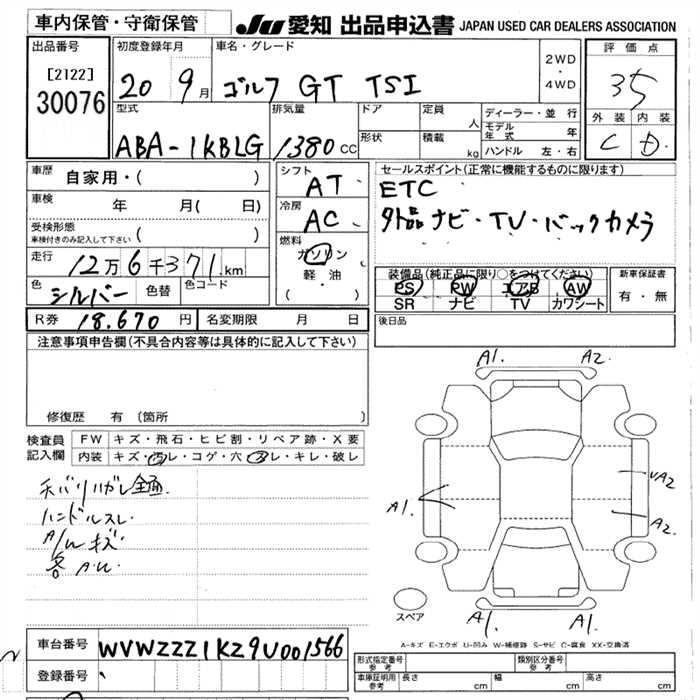 車内保管・守衛保管
JU 愛知 出品申込書 JAPAN USED CAR DEALERS ASSOCIATION
出品番号
[2122]
30076
初度登録年月
20 9月
車名・グレード
ゴルフ GT TSI
2WD
・
4WD
評価点
3.5
型式
ABA-1KBLG
排気量
1380 CC
ドア
形状
定員
人
積載
kg
ディーラー・並行
モデル年式 年
ハンドル 左・右
外装 内装
C D
車歴
自家用・( )
車検
年 月( 日)
受検形態
車検付きのみ記入して下さい ( )
走行
12万6千371km
色
シルバー
色替
色コード
シフト
AT
冷房
AC
燃料
ガソリン
軽・油
( )
セールスポイント(正常に機能するものに限ります)
ETC
外品ナビ・TV・バックカメラ
装備品(純正品に限り○をつけてください)
PS PW エアB AW
SR ナビ TV カワシート
新車保証書
有・無
R券 18.670 円
名変期限 月 日
後日品
注意事項申告欄(不具合内容等は具体的に記入して下さい)
修復歴 有 〔箇所
検査員記入欄
FW キズ・飛石・ヒビ割・リペア跡・X要
内装 キズ・汚レ・コゲ・穴・スレ・キレ・破レ
ハンドルスレ
A/W キズ
各 A.U.
A1. A2.
A1.
A2
A2
A1. A1.
スペア
A-キズ E-エクボ U-凹み W-補修跡 S-サビ C-腐食 XX-交換済
車台番号 WVWZZZ1KZ9U001566
登録番号
形式指定番号 参考
類別区分番号 参考
車庫証明用 参考
長さ cm
幅 cm
高さ cm